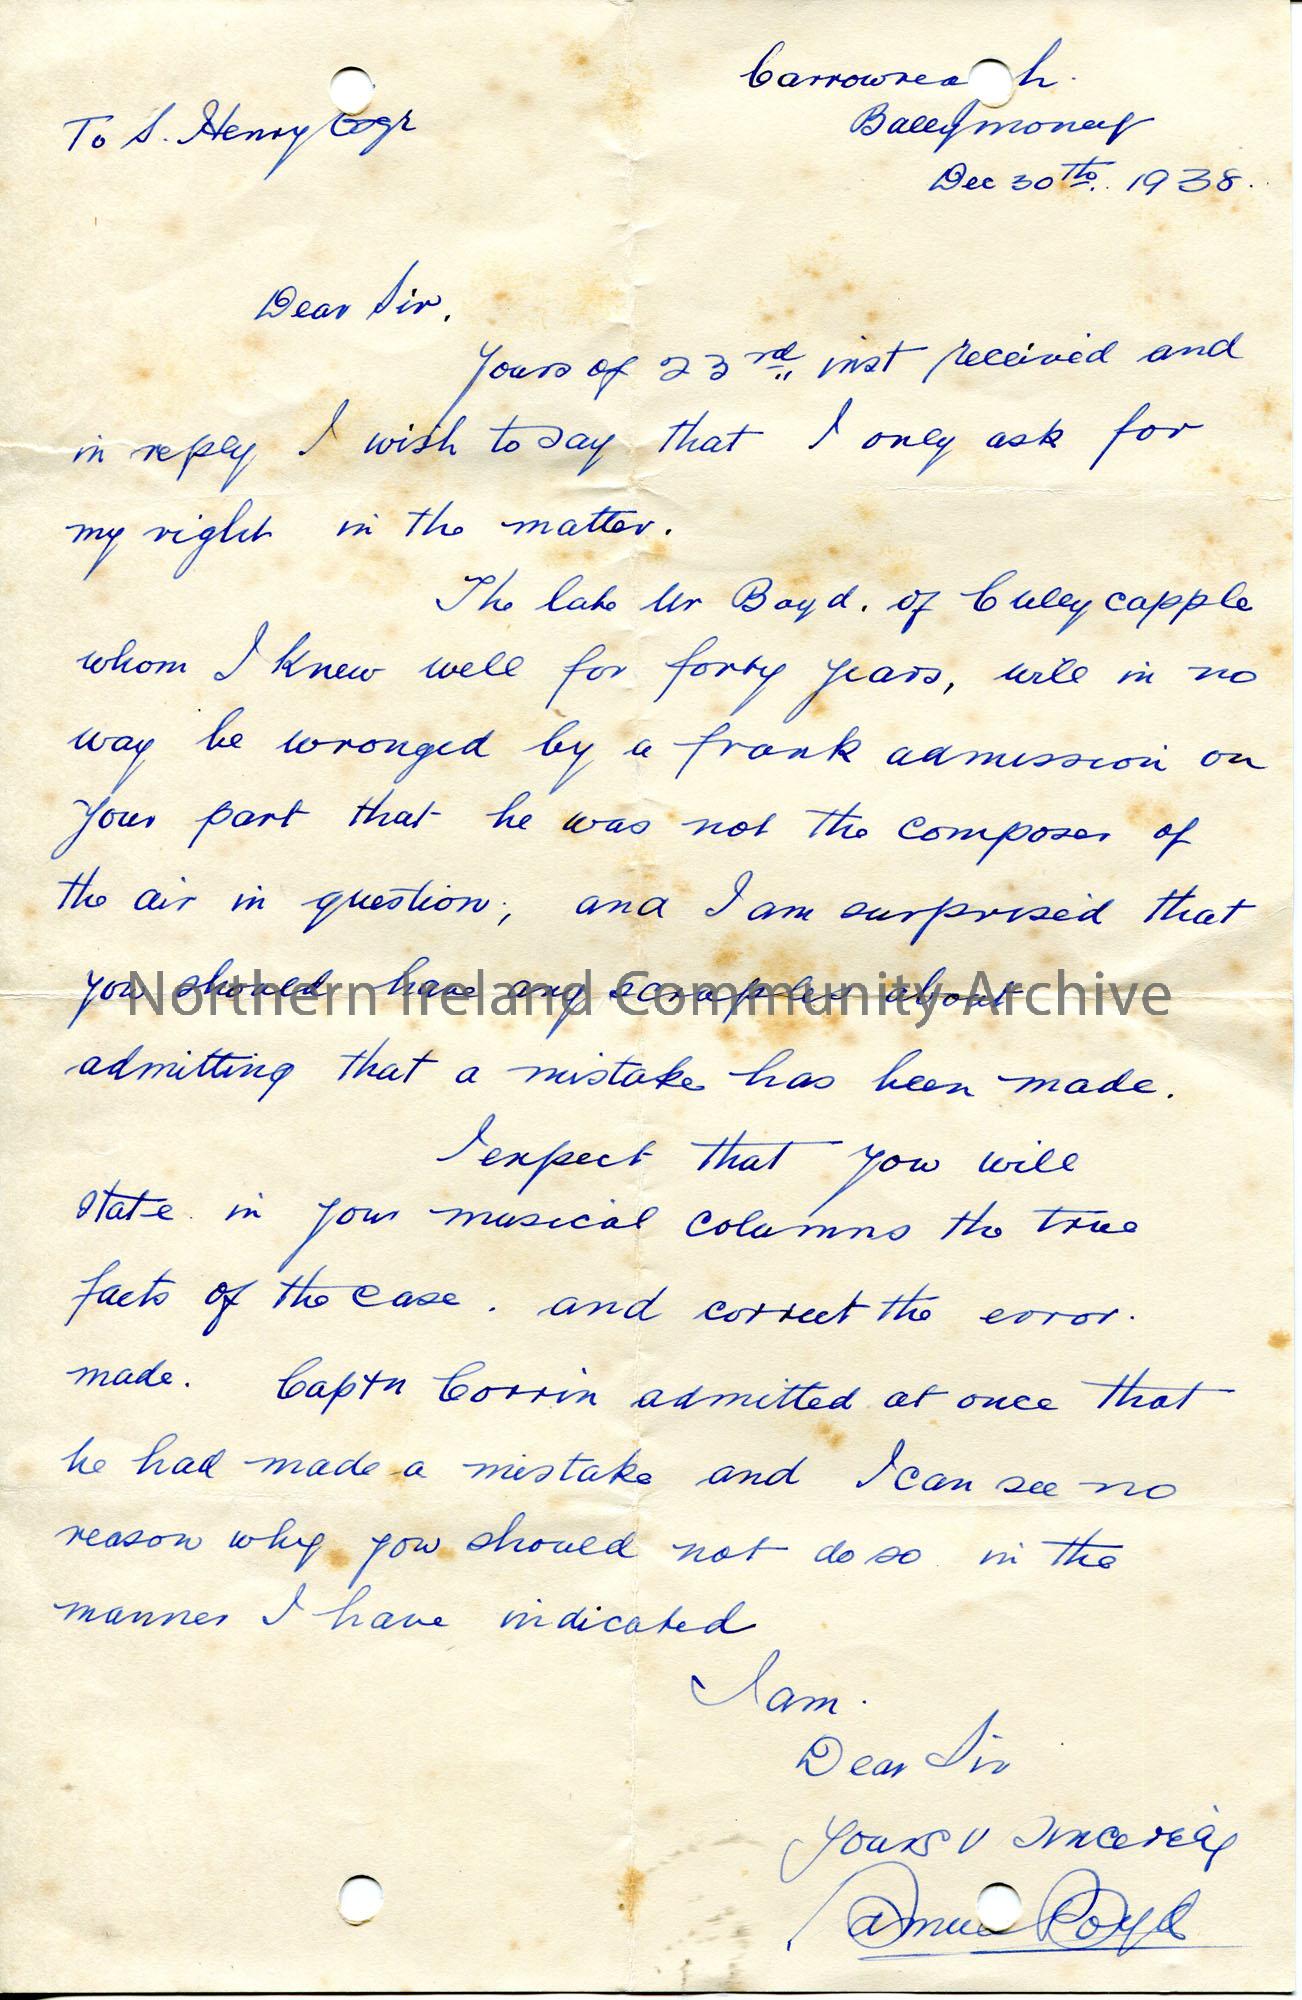 Carrowreagh.
To S. Henry Esqr
Ballymoney
Dec 30th. 1938.
Dear Sir.
Yours of 23rd inst received and
in reply I wish to say that I only ask for
my right in the matter.
The late Mr Boyd. of Cullycapple
whom I knew well for forty years, will in no
way be wronged by a frank admission on
your part that he was not the composer of
the air in question; and I am surprised that
you should have any scruples about
Northern Ireland Community Archive
admitting that a mistake has been made.
I expect that you will
state in your musical columns the true
facts of the case. and correct the error.
made. Captn Corrin admitted at once that
he had made a mistake and I can see no
reason why you should not do so in the
manner I have indicated
I am.
Dear Sir
Yours V Sincerely
Samuel Boyd